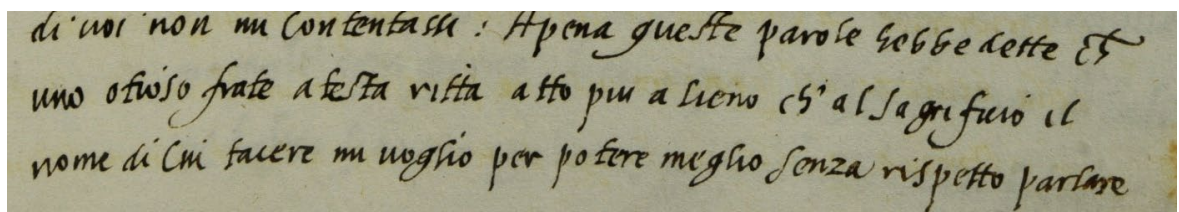 di uoi non mi Contentassi : Apena queste parole hebbe dette ch
uno otioso frate a testa ritta atto piu a lieno ch' al sagrificio il
nome di lui tacere mi uoglio per potere meglio senza rispetto parlare